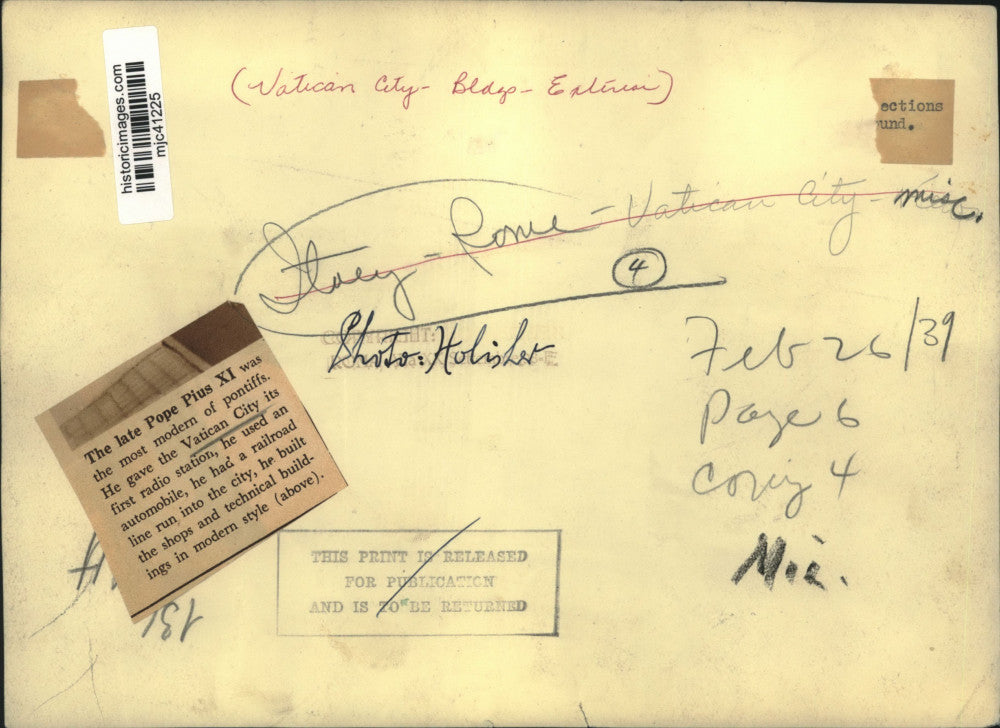 (Vatican City - Bldgs - Exterior)
historicimages.com
mjc41225
ections
und.
Rome - Vatican City - misc.
4
Photo: Holisher
Feb 26/39
Page 6
Copy 4
The late Pope Pius XI was
the most modern of pontiffs.
He gave the Vatican City its
first radio station, he used an
automobile, he had a railroad
line run into the city, he built
the shops and technical build-
ings in modern style (above).
THIS PRINT IS RELEASED
FOR PUBLICATION
AND IS TO BE RETURNED